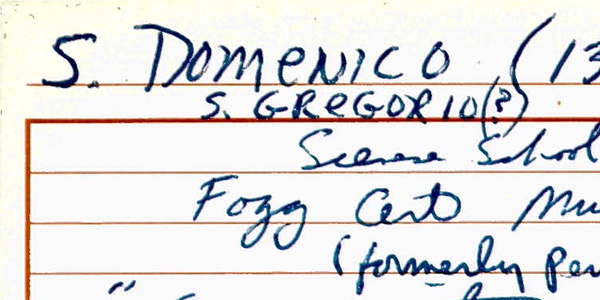 S. DOMENICO (13
S. GREGORIO(?)
Sienese School
Fogg Art Mu
(formerly Per
"